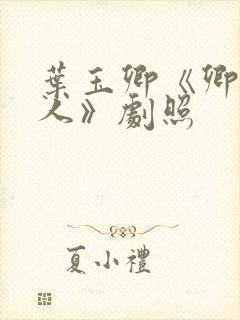 葉玉卿《卿
人》劇照
夏小禮